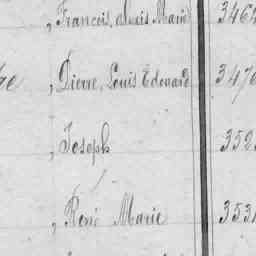 , François, Louis Marie 346
, Pierre, Louis Edouard 347
, Joseph 352
, René Marie 353